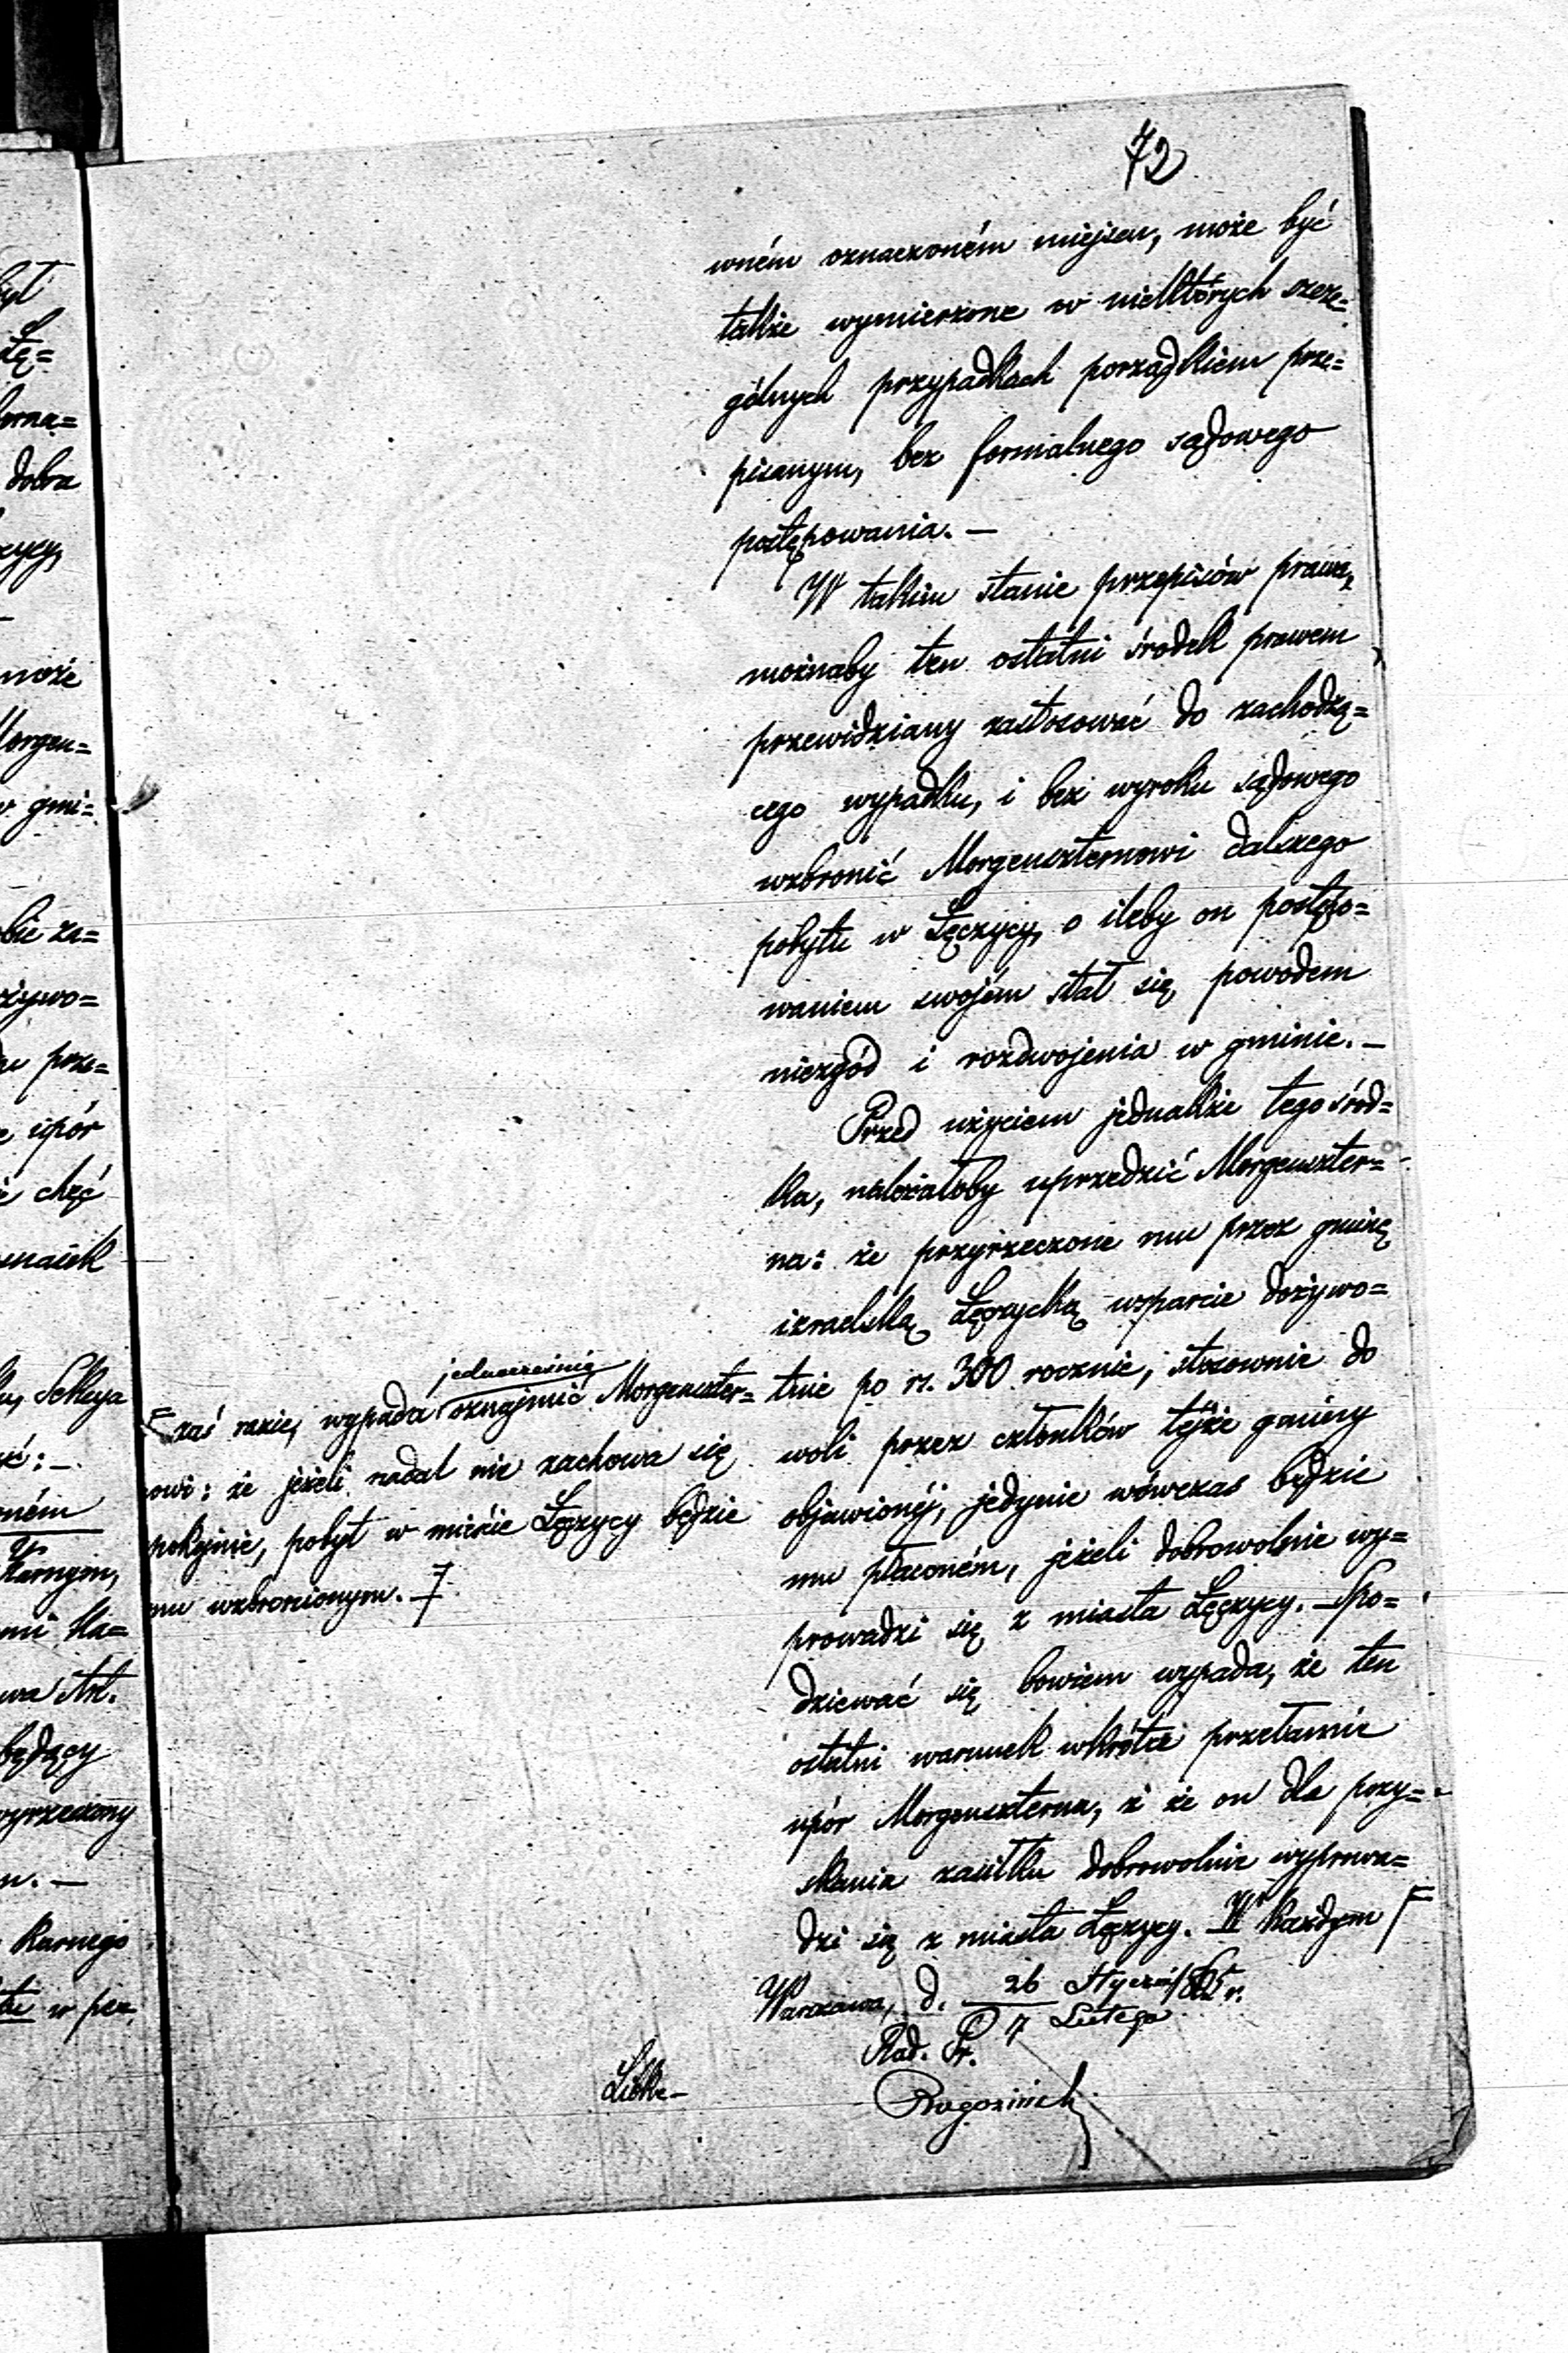 72
wném oznaczoném miejscu, może być
także wymierzone w niektórych szcze=
gólnych przypadkach porządkiem prze=
pisanym, bez formalnego sądowego
postępowania. —
W takim stanie przepisów prawa,
możnaby ten ostatni środek prawem
przewidziany zastosować do zachodzą=
cego wypadku, i bez wyroku sądowego
wzbronić Morgenszternowi dalszego
pobytu w Łęczycy, o ileby on postępo=
waniem swojém stał się powodem
niezgód i rozdwojenia w gminie. —
Przed użyciem jednakże tego środ=
ka, należałoby uprzedzić Morgenszter=
na: że przyrzeczone mu przez gminę
izraelską Łęczycką wsparcie dożywo=
tnie po rs. 300 rocznie, stosownie do
woli przez członków tejże gminy
objawionéj, jedynie wówczas będzie
mu płaconém, jeżeli dobrowolnie wy=
prowadzi się z miasta Łęczycy. — Spo=
dziewać się bowiem wypada, że ten
ostatni warunek wkrótce przełamie
upór Morgenszterna, i że on dla pozy=
skania zasiłku dobrowolnie wyprowa=
dzi się z miasta Łęczycy. W każdym F
F zaś razie, wypada jednocześnie oznajmić Morgenszter=
nowi: że jeżeli nadal nie zachowa się
spokojnie, pobyt w mieście Łęczycy będzie
mu wzbronionym. F
Warszawa, d. 26 Stycznia / 7 Lutego 1865 r.
Rad. Pr.